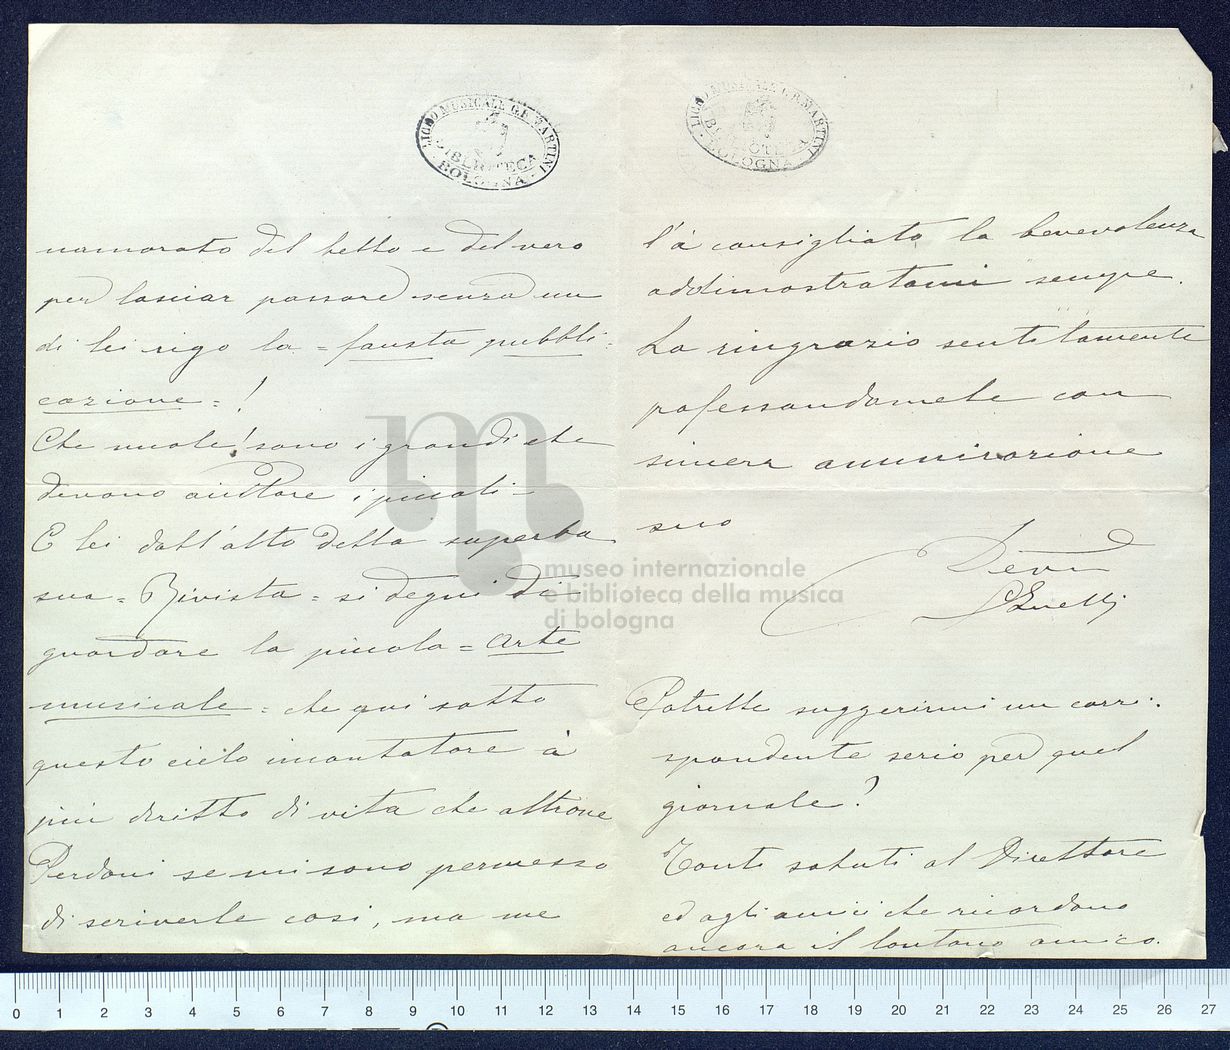 LICEO MUSICALE G. B. MARTINI
BIBLIOTECA
BOLOGNA
namorato del bello e del vero
per lasciar passare senza un
di lei rigo la = fausta pubbli-
cazione = !
Che vuole! sono i grandi che
devono aiutare i piccoli -
E lei dall'alto della superba
sua = Rivista = si degni di
guardare la piccola = Arte
musicale = che qui sotto
questo cielo incantatore à
più diritto di vita che altrove
Perdoni se mi sono permesso
di scriverle così, ma me
LICEO MUSICALE G. B. MARTINI
BIBLIOTECA
BOLOGNA
l'à consigliato la benevolenza
addimostratami sempre.
La ringrazio sentitamente
professandomele con
sincera ammirazione
suo
Dev.
Potrebbe suggerirmi un corri-
spondente serio per quel
giornale?
Tanti saluti al Direttore
ed agli amici che ricordano
ancora il lontano amico.
museo internazionale
e biblioteca della musica
di bologna
0 1 2 3 4 5 6 7 8 9 10 11 12 13 14 15 16 17 18 19 20 21 22 23 24 25 26 27